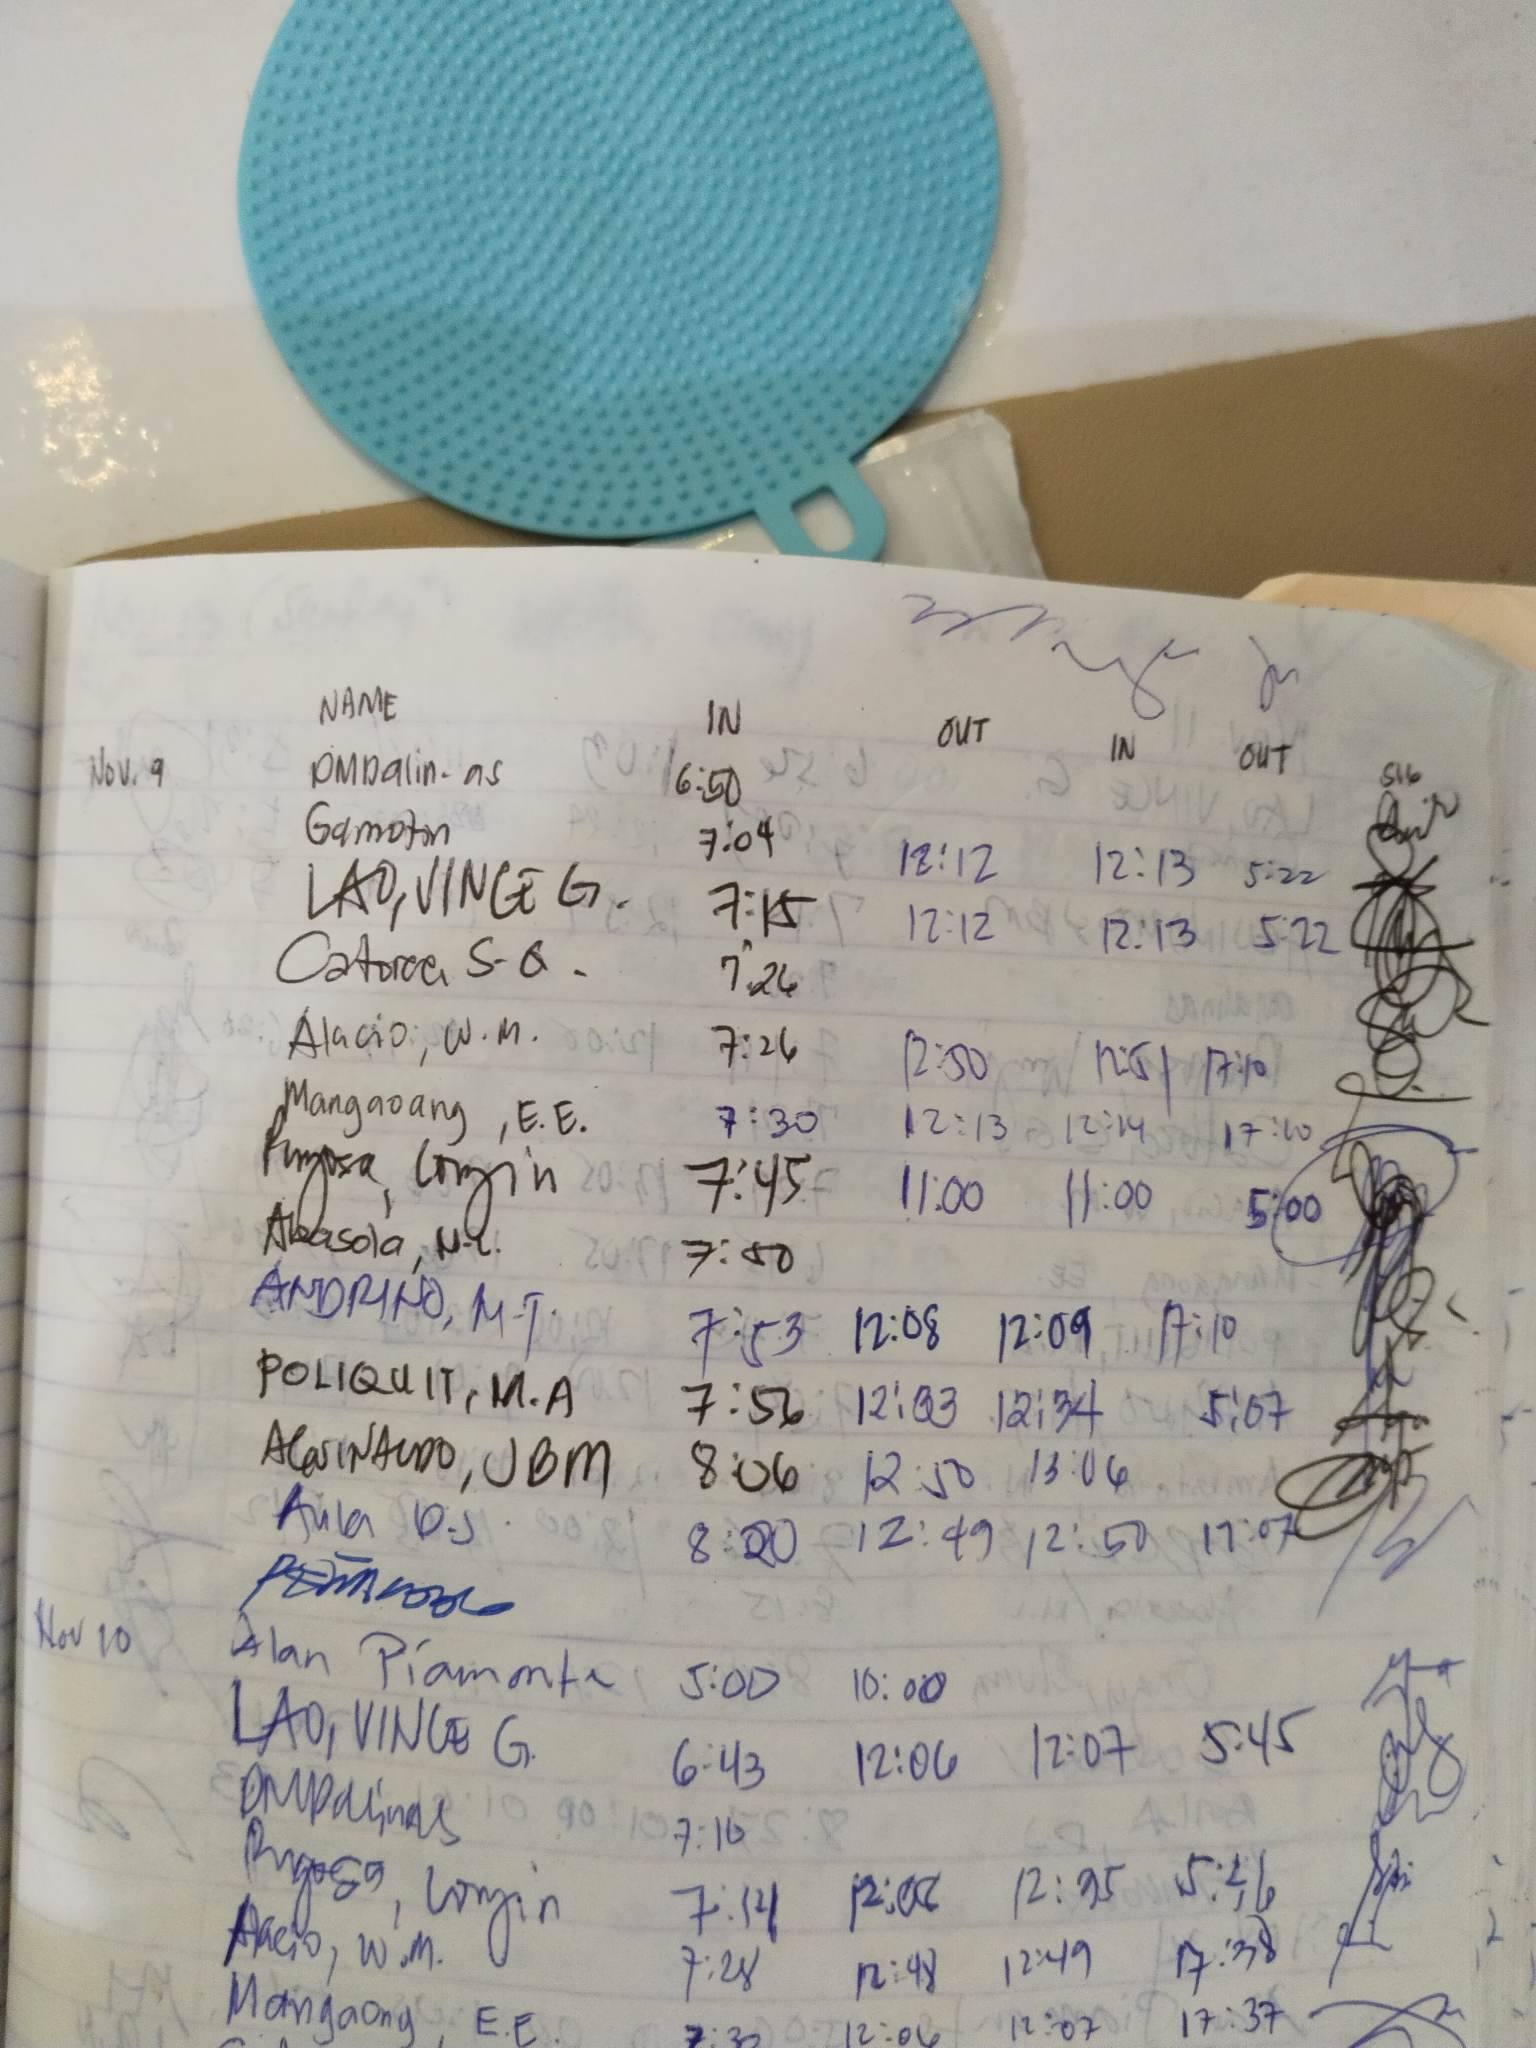 NAME IN OUT IN OUT SIG
Nov. 9 DMDalin-as 6:50
Gamotin 7:04 12:12 12:13 5:22
LAO, VINCE G. 7:15 12:12 12:13 5:22
Catorce, S-G. 7:26
Alacio, W.M. 7:26 12:50 12:51 17:10
Mangaoang, E.E. 7:30 12:13 12:14 17:10
Pungosa, Longin 7:45 11:00 11:00 5:00
Abasola, N.L. 7:50
ANDRINO, M-T. 7:53 12:08 12:09 17:10
POLIQUIT, M.A 7:56 12:33 12:34 5:07
AGUINALDO, JBM 8:06 12:50 13:06
Aula D.J. 8:20 12:49 12:50 17:07
Nov 10 Alan Piamonte 5:00 10:00
LAO, VINCE G. 6:43 12:06 12:07 5:45
DMDalinas 7:10
Longin 7:14 12:35
Alacio, W.M. 7:28 12:48 12:49 17:38
Mangaong, E.E. 7:30 12:06 12:07 17:37